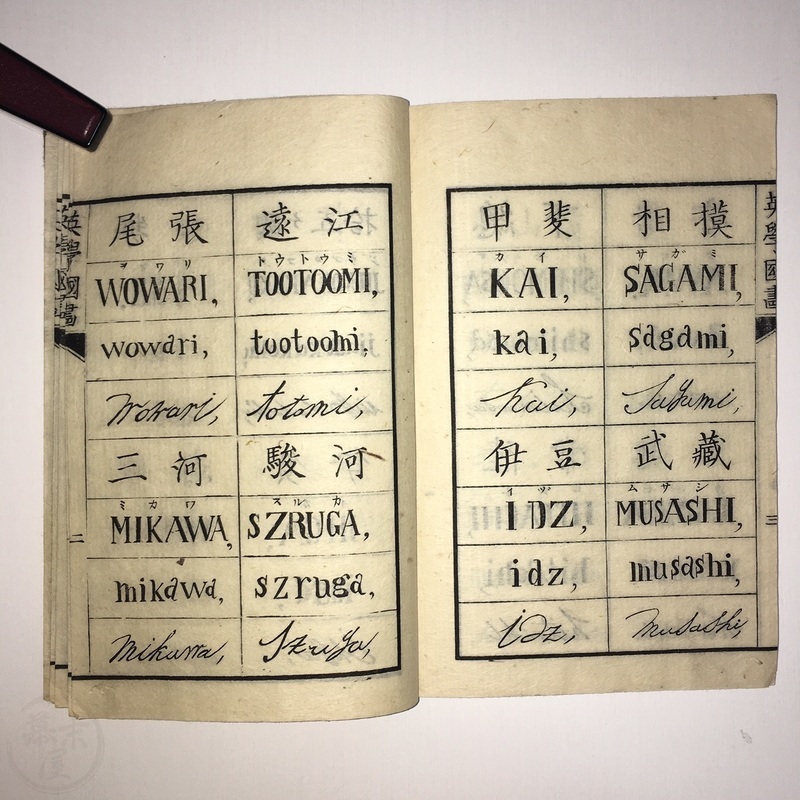 英學國
二
尾張
ヲワリ
WOWARI,
wowari,
Wowari,
三河
ミカワ
MIKAWA,
mikawa,
Mikawa,
遠江
トウトウミ
TOOTOOMI,
tootoomi,
totomi,
駿河
スルカ
SZRUGA,
szruga,
Szruga,
甲斐
カイ
KAI,
kai,
Kai,
伊豆
イヅ
IDZ,
idz,
idz,
相摸
サガミ
SAGAMI,
sagami,
Sagami,
武藏
ムサシ
MUSASHI,
musashi,
Musashi,
英學國
三
幕末屋